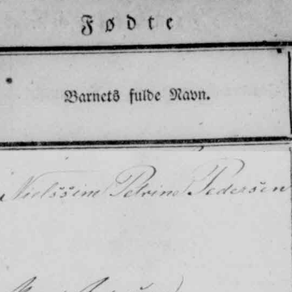 Fødte
Barnets fulde Navn.
Nielssine Petrine Pedersen